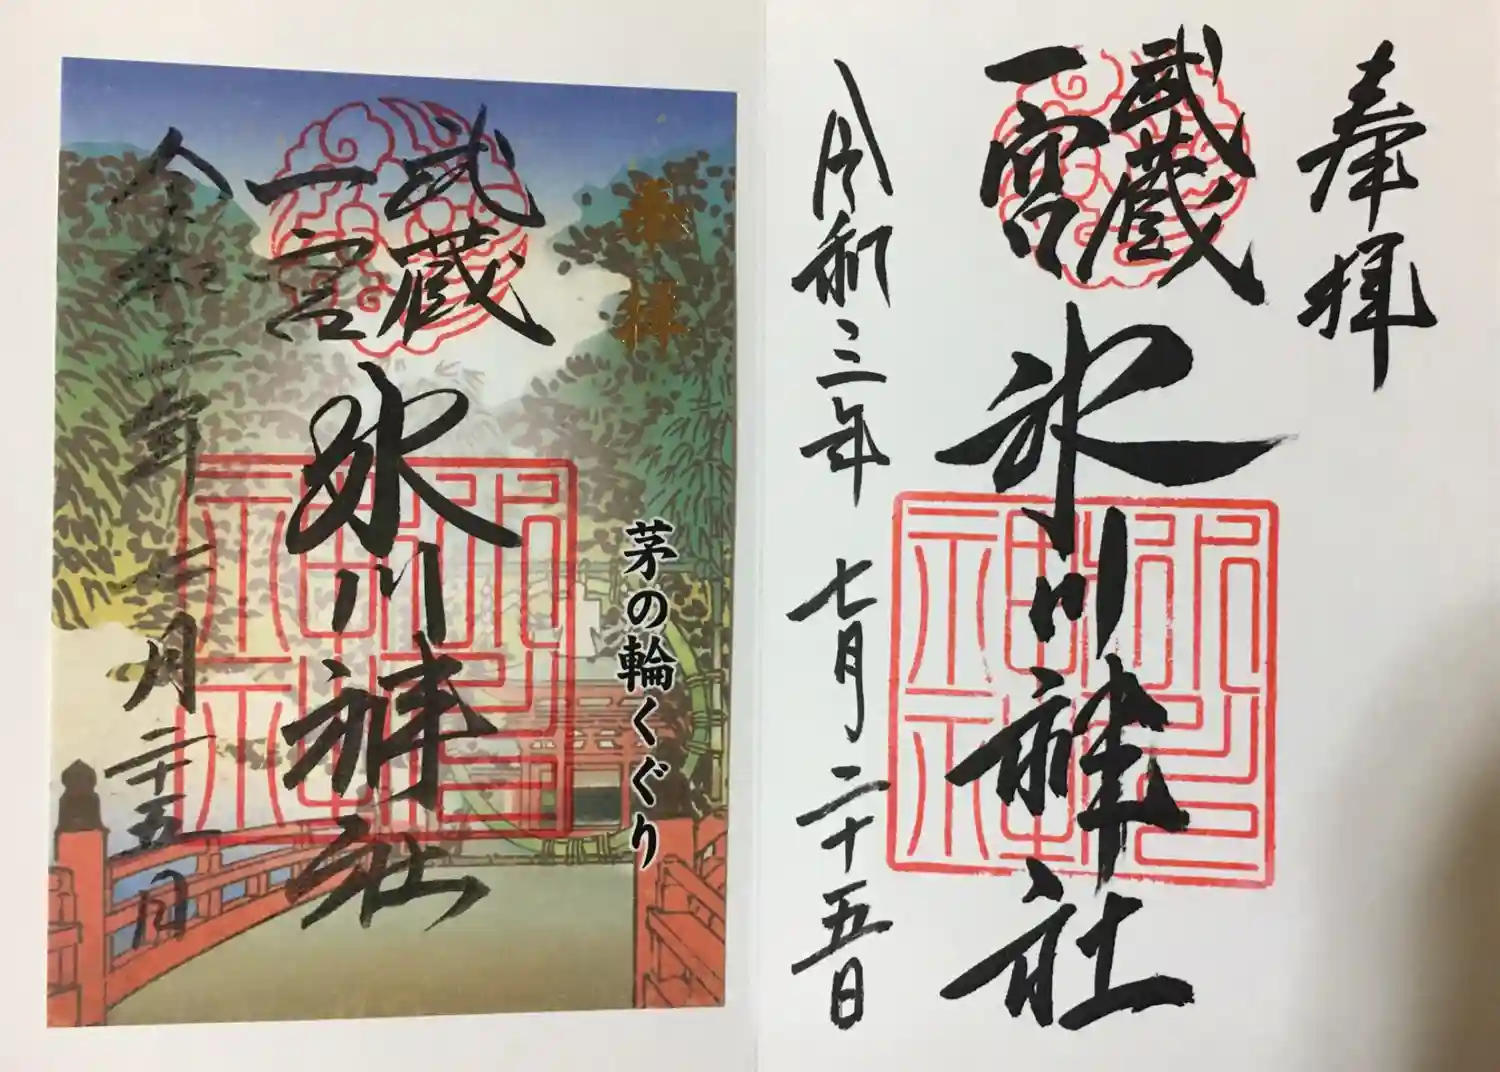 奉拝
武蔵
一宮
氷川神社
令和三年 七月二十五日
奉拝
茅の輪くぐり
武蔵
一宮
氷川神社
令和三年 七月二十五日
氷川
神社
氷川
神社